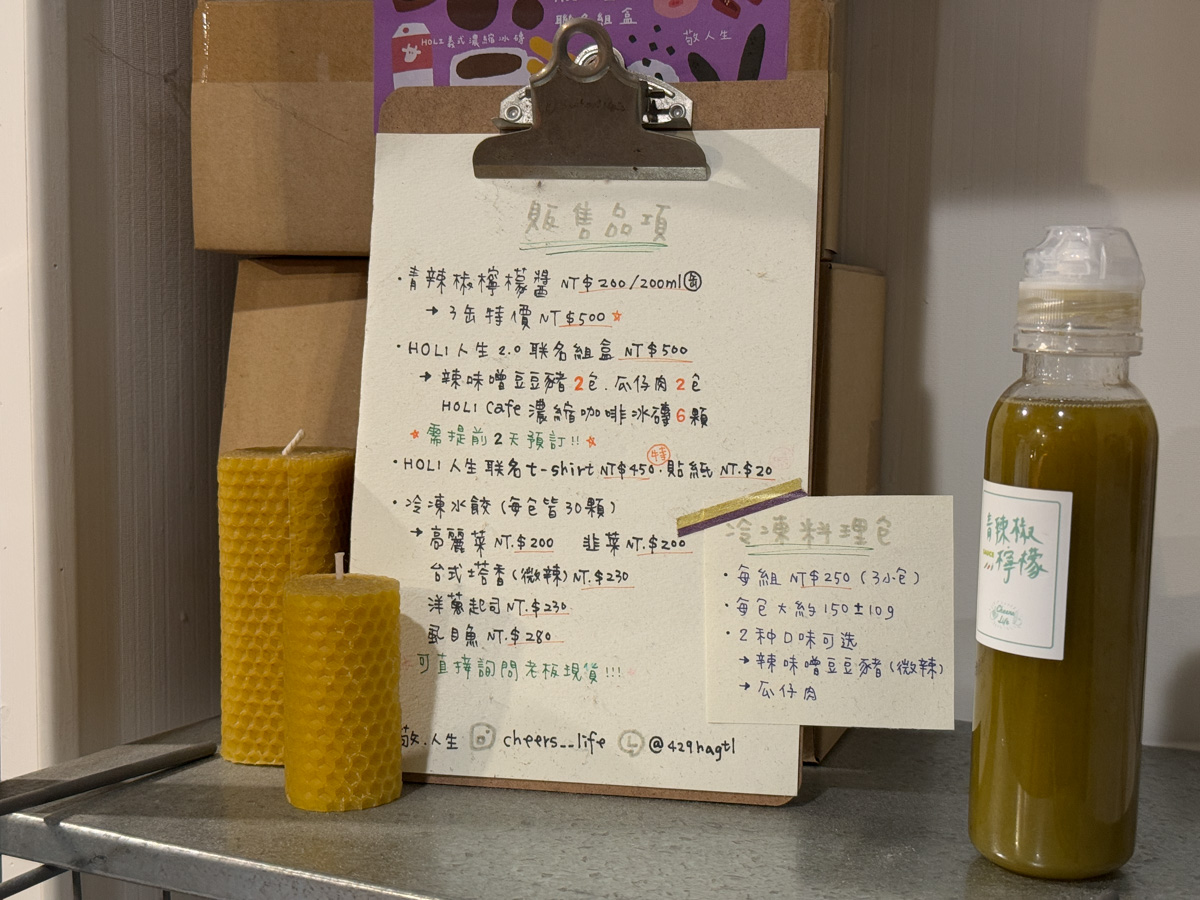 聯名組盒
HOLI義式濃縮冰磚
敬人生
販售品項
·青辣椒檸檬醬 NT$200/200ml
→3缶特價 NT$500☆
·HOLI人生2.0联名組盒 NT$500
→辣味噌豆豆豬2包.瓜仔肉2包
HOLI Cafe 濃縮咖啡冰磚6顆
★需提前2天預訂!!★
·HOLI人生联名t-shirt NT$450.貼紙 NT.$20
特
·冷凍水餃(每包皆30顆)
→高麗菜 NT.$200 韭菜 NT.$200
台式塔香(微辣) NT.$230
洋蔥起司 NT.$230
虱目魚 NT.$280
*可直接詢問老板現貨!!!
敬.人生 cheers__life L @429hagtl
冷凍料理包
·每組 NT$250 (3小包)
·每包大約150±10g
·2种口味可选
→辣味噌豆豆豬(微辣)
→瓜仔肉
青辣椒
檸檬
Cheers
Life